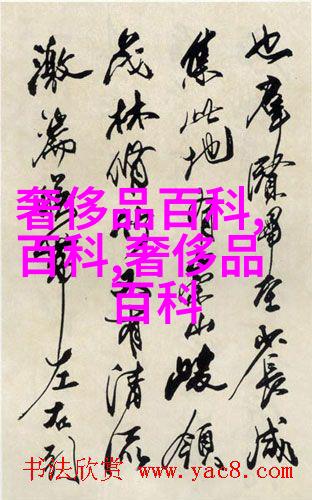 也羣賢畢至少長咸
集此地有崇山峻領
茂林脩竹又有清流
激湍映帶左右引
奢侈品百科,
百科,奢侈品
百科
书法欣赏 www.yac8.com